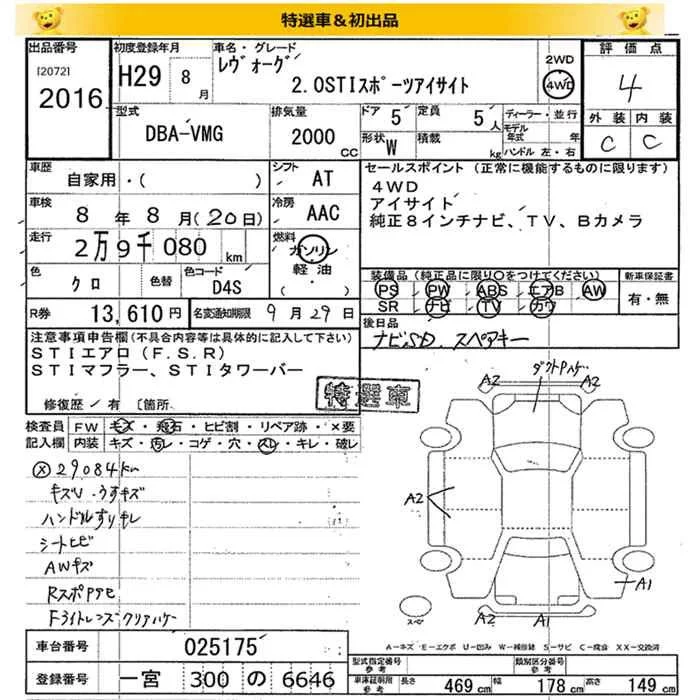 特選車＆初出品
出品番号
[2072]
2016
初度登録年月
H29 8月
車名・グレード
レヴォーグ
2.0STIスポーツアイサイト
2WD
4WD
評価点
4
外装 内装
C C
型式
DBA-VMG
排気量
2000 CC
ドア 5
定員 5人
形状 W
積載 kg
ディーラー・並行
モデル年式 年
ハンドル 左・右
車歴
自家用・( )
シフト
AT
車検
8年8月(20日)
冷房
AAC
走行
2万9千080km
燃料
ガソリン
軽油
( )
色
クロ
色替
色コード
D4S
R券 13,610円
名変通知期限 9月29日
セールスポイント（正常に機能するものに限ります）
4WD
アイサイト
純正8インチナビ、TV、Bカメラ
装備品（純正品に限り○をつけてください）
PS PW ABS エアB AW
SR ナビ TV カワ
新車保証書
有・無
後日品
ナビSD、スペアキー
注意事項申告欄（不具合内容等は具体的に記入して下さい）
STIエアロ（F.S.R）
STIマフラー、STIタワーバー
修復歴/有 〔箇所
特選車
検査員記入欄
FW キズ・飛石・ヒビ割・リペア跡・×要
内装 キズ・汚レ・コゲ・穴・スレ・キレ・破レ
29084km
キズU・うすキズ
ハンドルすりキレ
シートヒビ
AWキズ
RスポPサビ
Fライトレンズクリアハゲ
A2 ダクトPハゲ A2
A2
A1
A2 A1
スペア
A＝キズ・E＝エクボ U＝凹み W＝補修跡 S＝サビ C＝腐食 XX＝交換済
車台番号 025175
登録番号 一宮 300 の 6646
型式指定番号 参考
類別区分番号 参考
車庫証明用 参考
長さ 469cm
幅 178cm
高さ 149cm